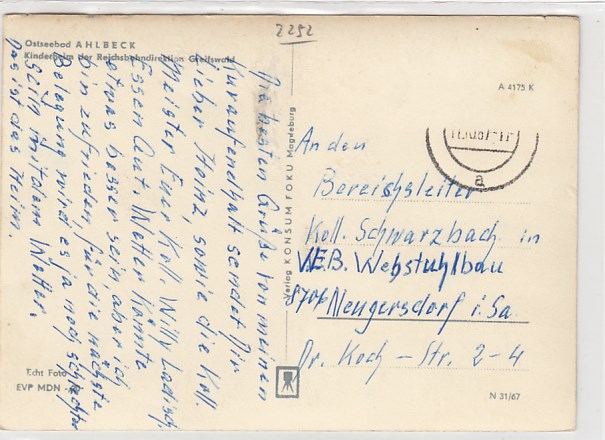 2252
Ostseebad AHLBECK
Kinderheim der Reichsbahndirektion Greifswald
A 4175 K
Die besten Grüße von meinen
Kuraufenthalt sendet Dir
lieber Heinz, sowie die Koll.
Meister Euer Koll. Willy
Essen Gut. Wetter könnte
etwas besser sein, aber ich
bin zufrieden, für die nächste
Belegung wird es ja noch schlechter
sein mit dem Wetter.
Das ist das Heim.
Verlag KONSUM FOKU Magdeburg
a
An den
Bereichsleiter
Koll. Schwarzbach in
V.E.B. Webstuhlbau
8706 Neugersdorf i. Sa.
Dr. Koch - Str. 2-4
Echt Foto
EVP MDN
N 31/67